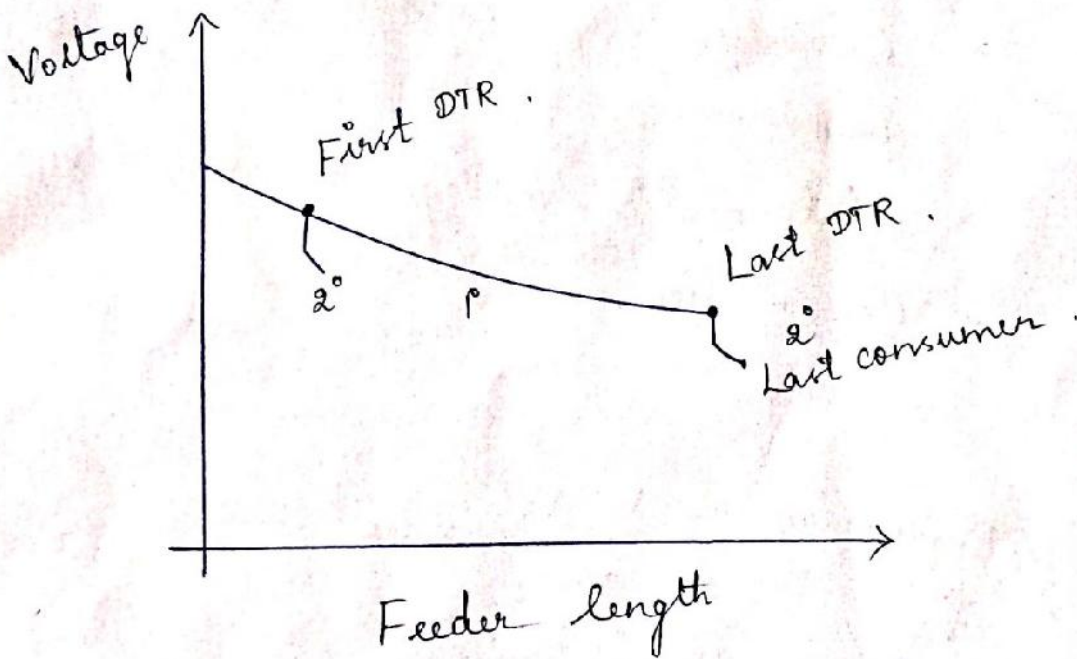 Voltage
First DTR .
Last DTR .
2°
1°
2°
Last consumer .
Feeder length